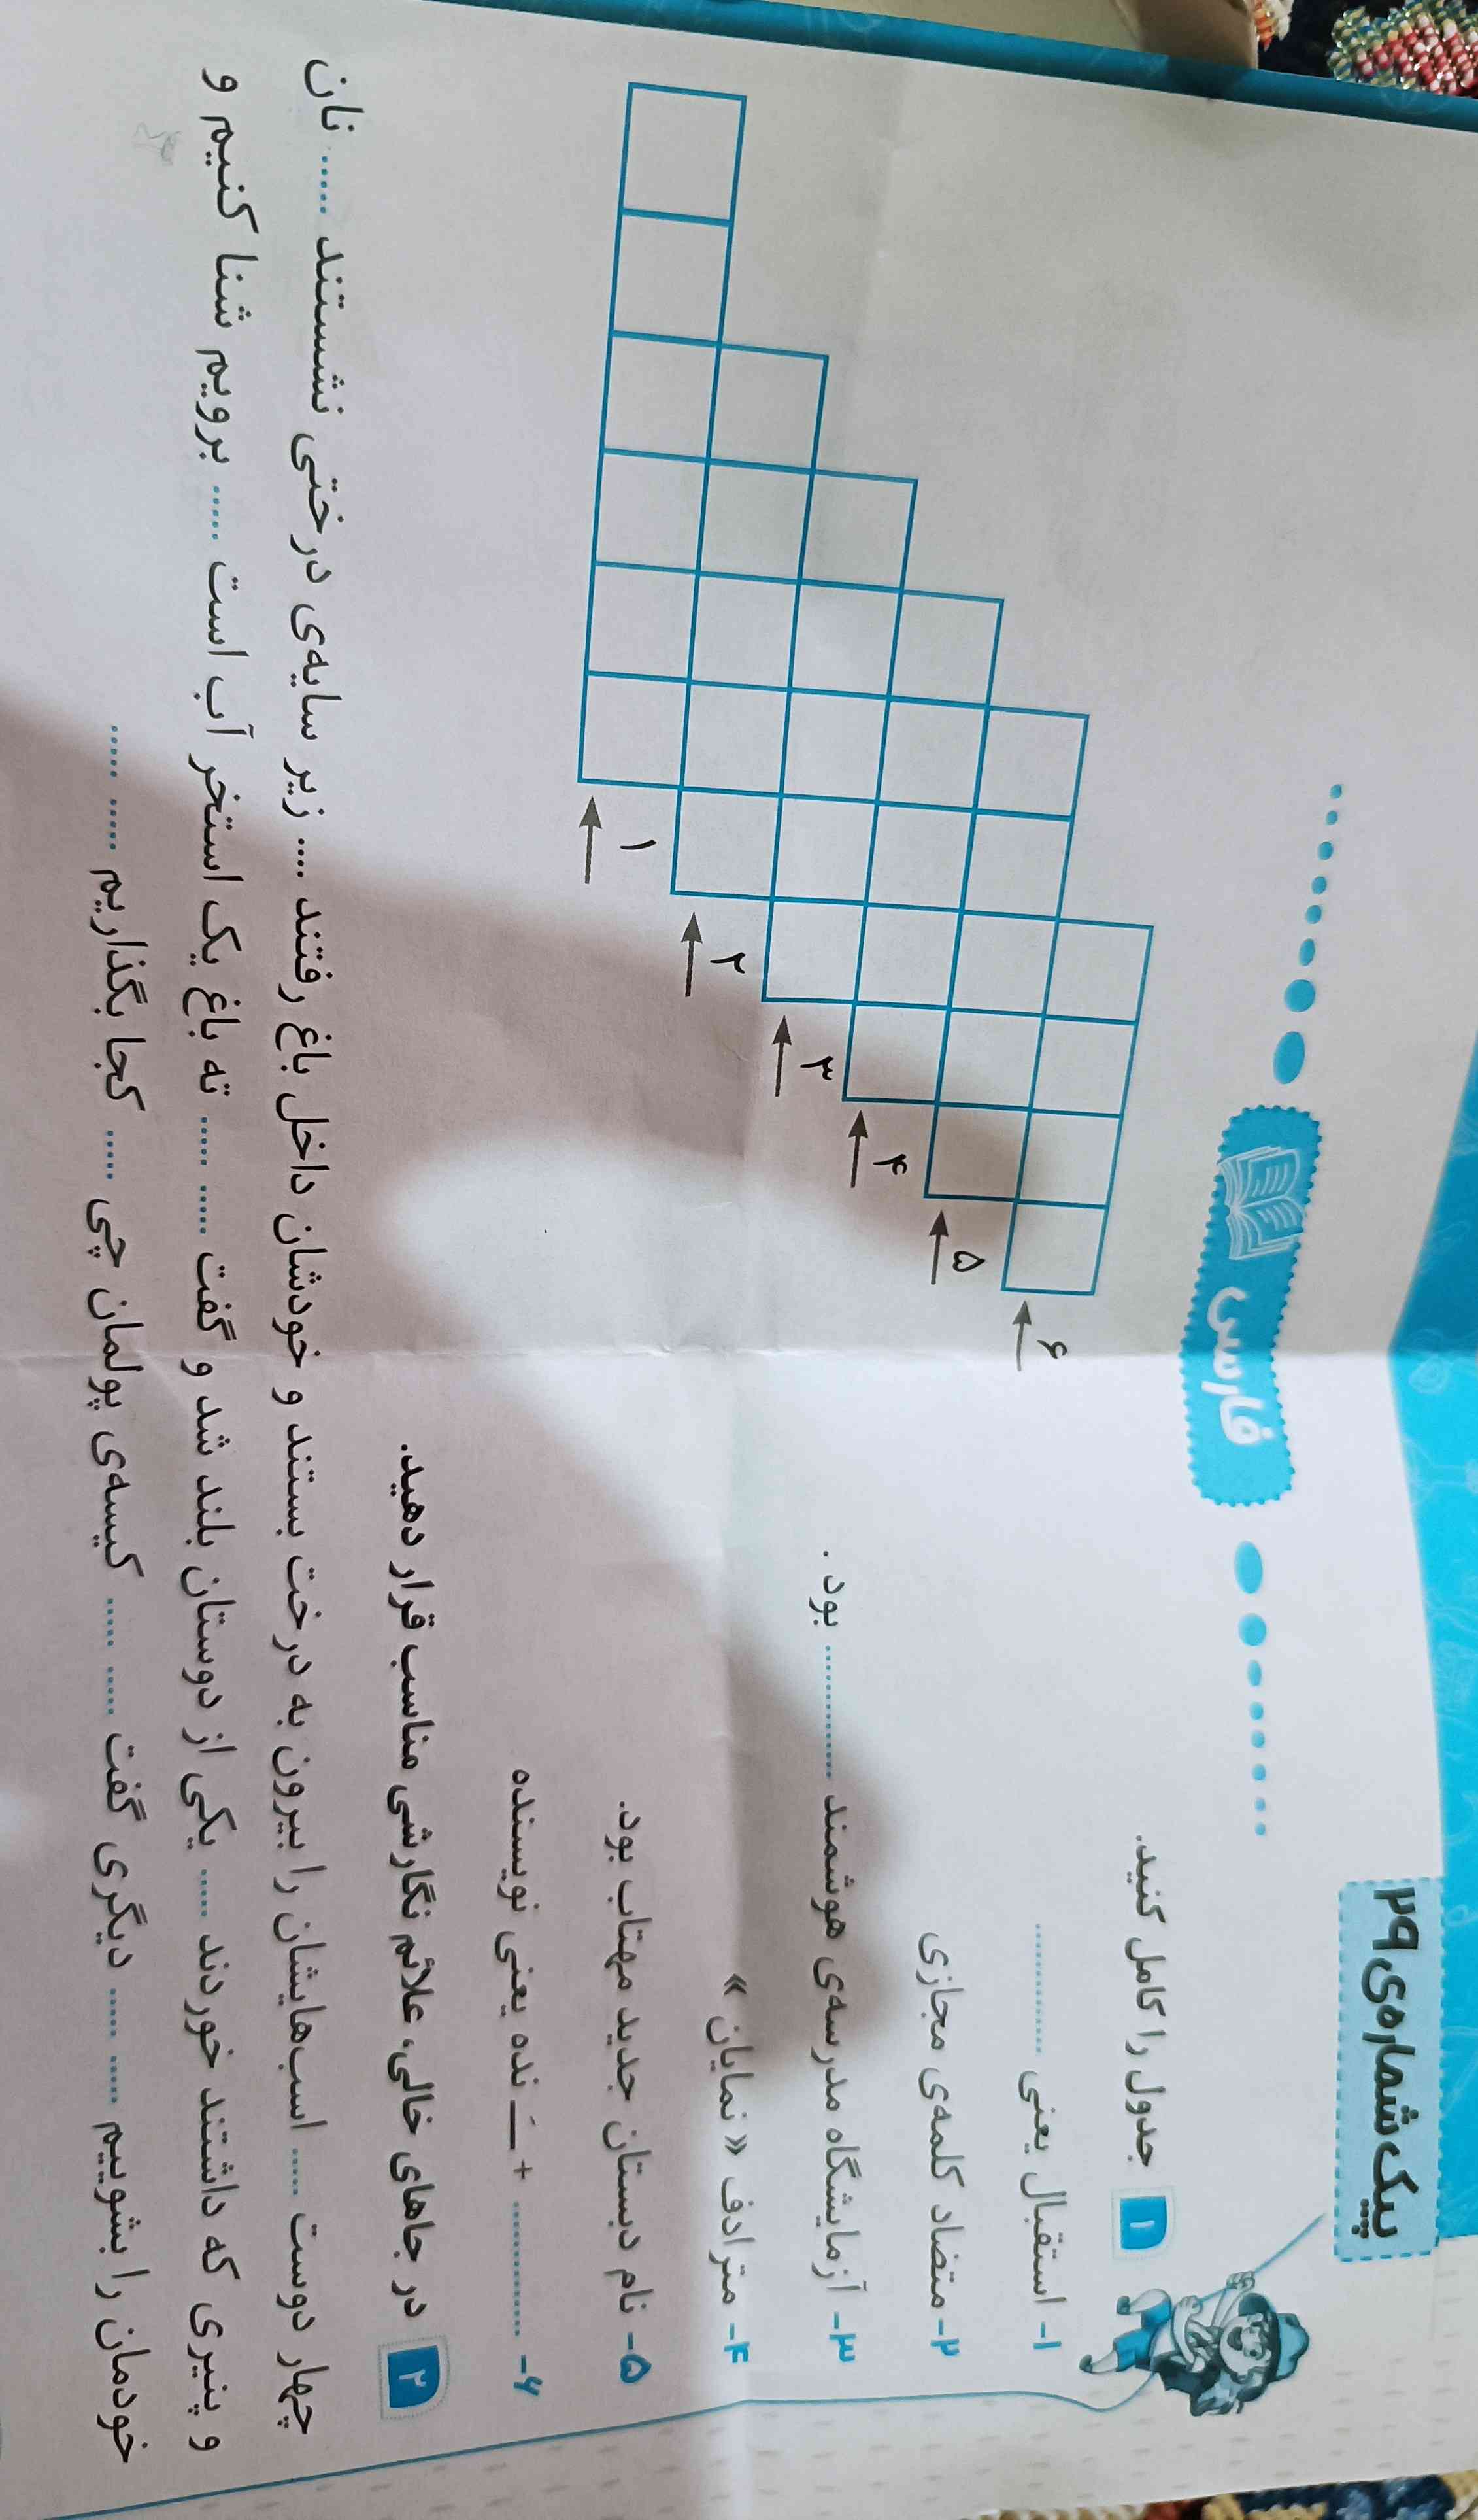 پیک شماره‌ی ۲۹
فارسی
۱ جدول را کامل کنید.
۱- استقبال یعنی ............
۲- متضاد کلمه‌ی مجازی
۳- آزمایشگاه مدرسه‌ی هوشمند ............ بود .
۴- مترادف « نمایان »
۵- نام دبستان جدید مهتاب بود.
۶- ............ + ــَـ نده یعنی نویسنده
۶
۵
۴
۳
۲
۱
۲ در جاهای خالی، علائم نگارشی مناسب قرار دهید.
چهار دوست ..... اسب‌هایشان را بیرون به درخت بستند و خودشان داخل باغ رفتند .... زیر سایه‌ی درختی نشستند ..... نان
و پنیری که داشتند خوردند ..... یکی از دوستان بلند شد و گفت ..... ..... ته باغ یک استخر آب است ..... برویم شنا کنیم و
خودمان را بشوییم ..... ..... دیگری گفت ..... ..... کیسه‌ی پولمان چی ..... کجا بگذاریم ..... .....